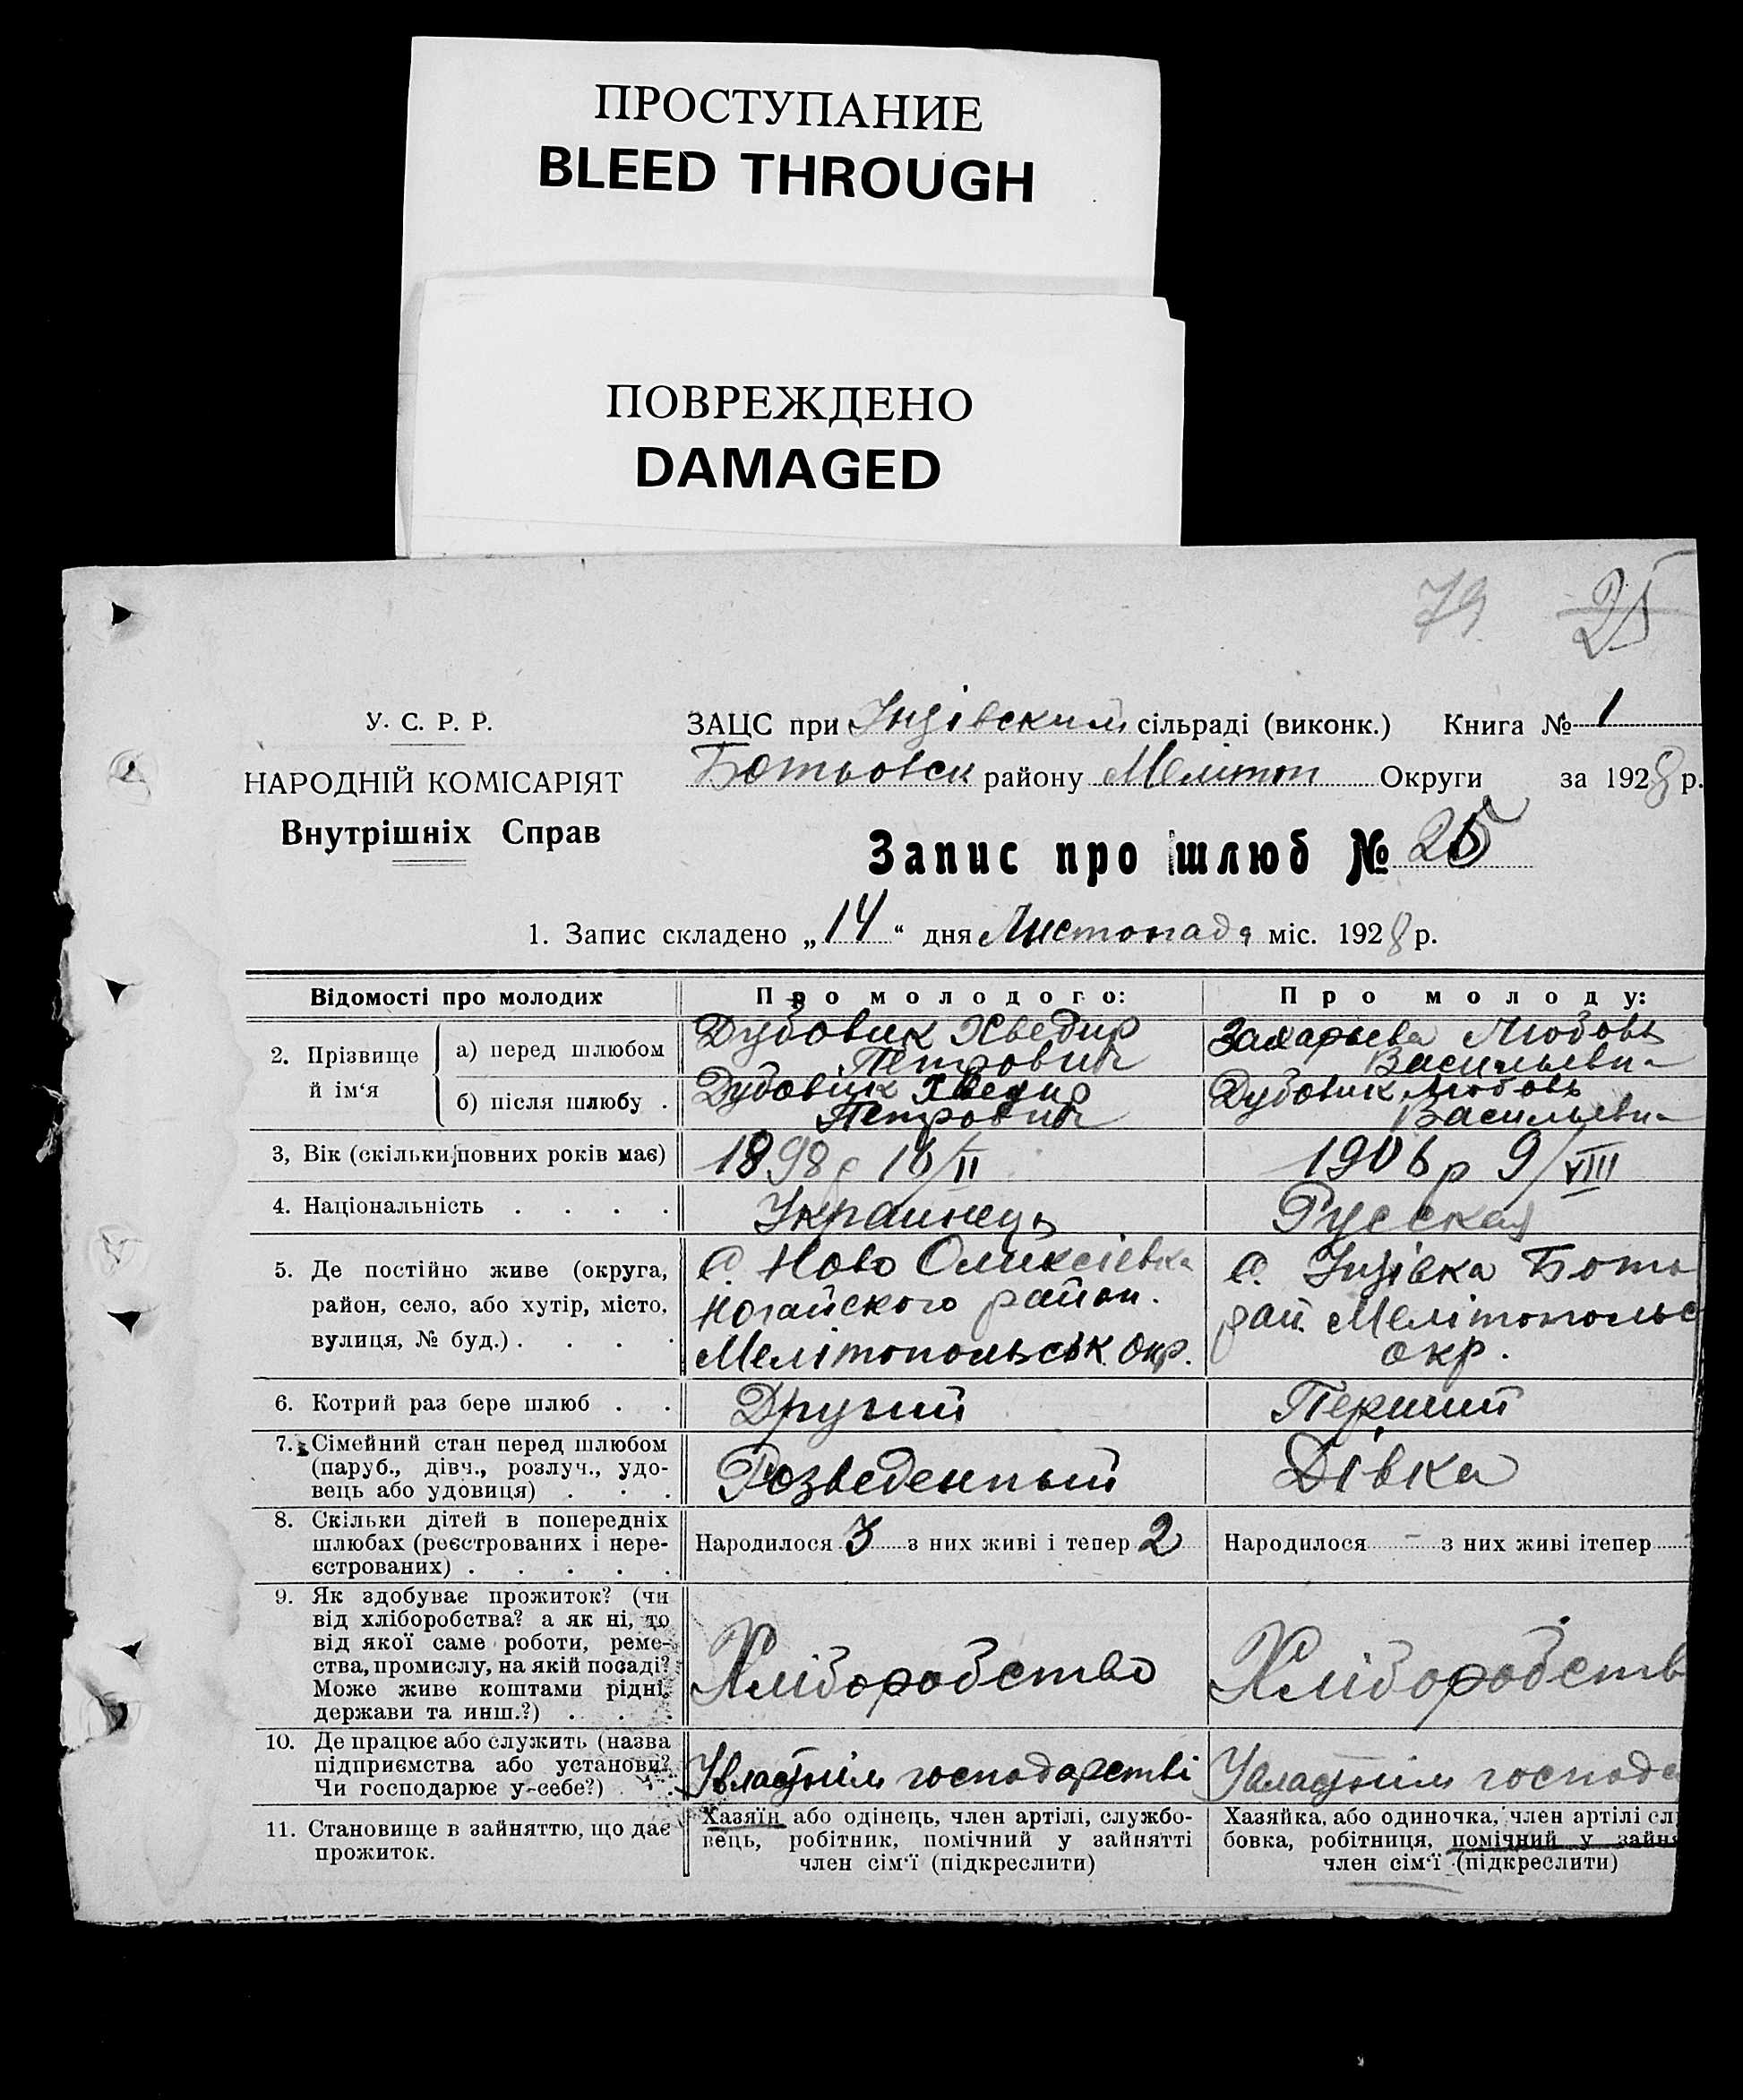 ПРОСТУПАНИЕ
BLEED THROUGH
ПОВРЕЖДЕНО
DAMAGED
79 25
У. С. Р. Р.
НАРОДНІЙ КОМІСАРІЯТ
Внутрішніх Справ
ЗАЦС при Інзівским сільраді (виконк.) Книга № 1
Ботьовск району Мелітоп Округи за 1928 р.
Запис про шлюб № 25
1. Запис складено „14“ дня Листопада міс. 1928 р.
Відомості про молодих
Про молодого:
Про молоду:
2. Прізвище й ім‘я
а) перед шлюбом
Дубовик Хведир
Петрович
Захарьева Любовь
Васильевн
б) після шлюбу .
Дубовик Хведир
Петрович
Дубовик Любовь
Васильевн
3, Вік (скільки повних років має)
1898 р 16/II
1906 р 9/VIII
4. Національність . . . .
Украинець
Русская
5. Де постійно живе (округа,
район, село, або хутір, місто,
вулиця, № буд.) . . . .
с. Ново Оликсіевка
Ногайского район.
Мелітопольськ. Окр.
с. Інзівка Бото
рай. Мелітопольс
окр.
6. Котрий раз бере шлюб . .
Другий
Перший
7. Сімейний стан перед шлюбом
(паруб., дівч., розлуч., удо-
вець або удовиця) . . .
Розведенный
Дівка
8. Скільки дітей в попередніх
шлюбах (реєстрованих і нере-
єстрованих) . . . . .
Народилося 3 з них живі і тепер 2
Народилося - з них живі ітепер
9. Як здобуває прожиток? (чи
від хліборобства? а як ні, то
від якої саме роботи, реме-
ства, промислу, на якій посаді?
Може живе коштами рідні,
держави та инш.?) . . .
Хліборобство
Хліборобств
10. Де працює або служить (назва
підприємства або установи?
Чи господарює у-себе?) . .
У власнім господарстві
У власнім господа
11. Становище в зайняттю, що дає
прожиток.
Хазяїн або одінець, член артілі, службо-
вець, робітник, помічний у зайнятті
член сім‘ї (підкреслити)
Хазяйка, або одиночка, член артілі сл
бовка, робітниця, помічний у зайня
член сім‘ї (підкреслити)